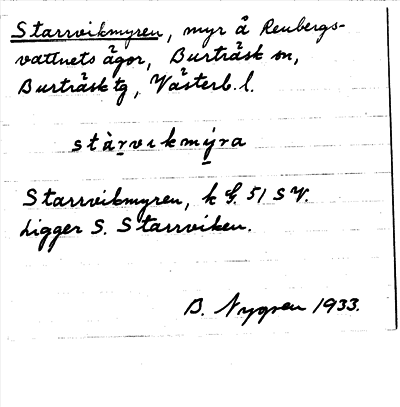 Starrvikmyren, myr å Renbergs-
vattnets ägor, Burträsk sn,
Burträsk tg, Västerb. l.
stàr̲vıkmý̲ra
Starrvikmyren, k G. 51 S V.
Ligger S. Starrviken.
B. Nygren 1933.